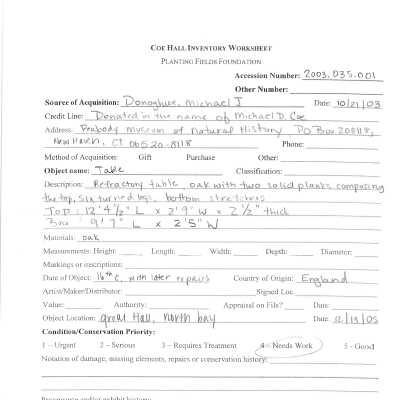 COE HALL INVENTORY WORKSHEET
PLANTING FIELDS FOUNDATION
Accession Number: 2003.035.001
Other Number:
Source of Acquisition: Donoghue, Michael J Date: 10/21/03
Credit Line: Donated in the name of Michael D. Coe
Address: Peabody Museum of Natural History PO Box 208118,
New Haven, CT 06520-8118 Phone:
Method of Acquisition: Gift Purchase Other:
Object name: Table Classification:
Description: Refractory table, oak with two solid planks composing
the top, six turned legs, bottom stretchers
Top: 12'4½" L x 2'9" W x 2½" thick
9'7" L x 2'5" W
Materials: oak
Measurements: Height: Length: Width: Depth: Diameter:
Markings or inscriptions:
Date of Object: 16th C. with later repairs Country of Origin: England
Artist/Maker/Distributor: Signed Loc.
Value: Authority: Appraisal on File? Date:
Object Location: great Hall, north bay Date: 12/13/05
Condition/Conservation Priority:
1 – Urgent 2 – Serious 3 – Requires Treatment 4 – Needs Work 5 - Good
Notation of damage, missing elements, repairs or conservation history: